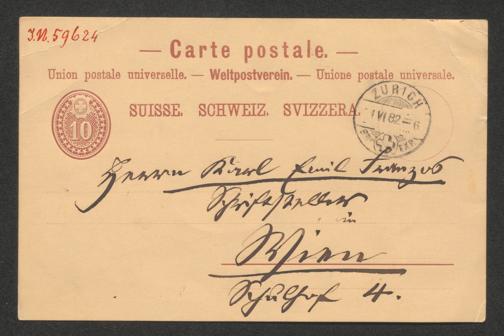 I.N. 59624
— Carte postale. —
Union postale universelle. — Weltpostverein. — Unione postale universale.
SUISSE. SCHWEIZ. SVIZZERA.
10
ZÜRICH
VI 82
6
Herrn Karl Emil Franzos
Schriftsteller
in
Wien
Schulhof 4.